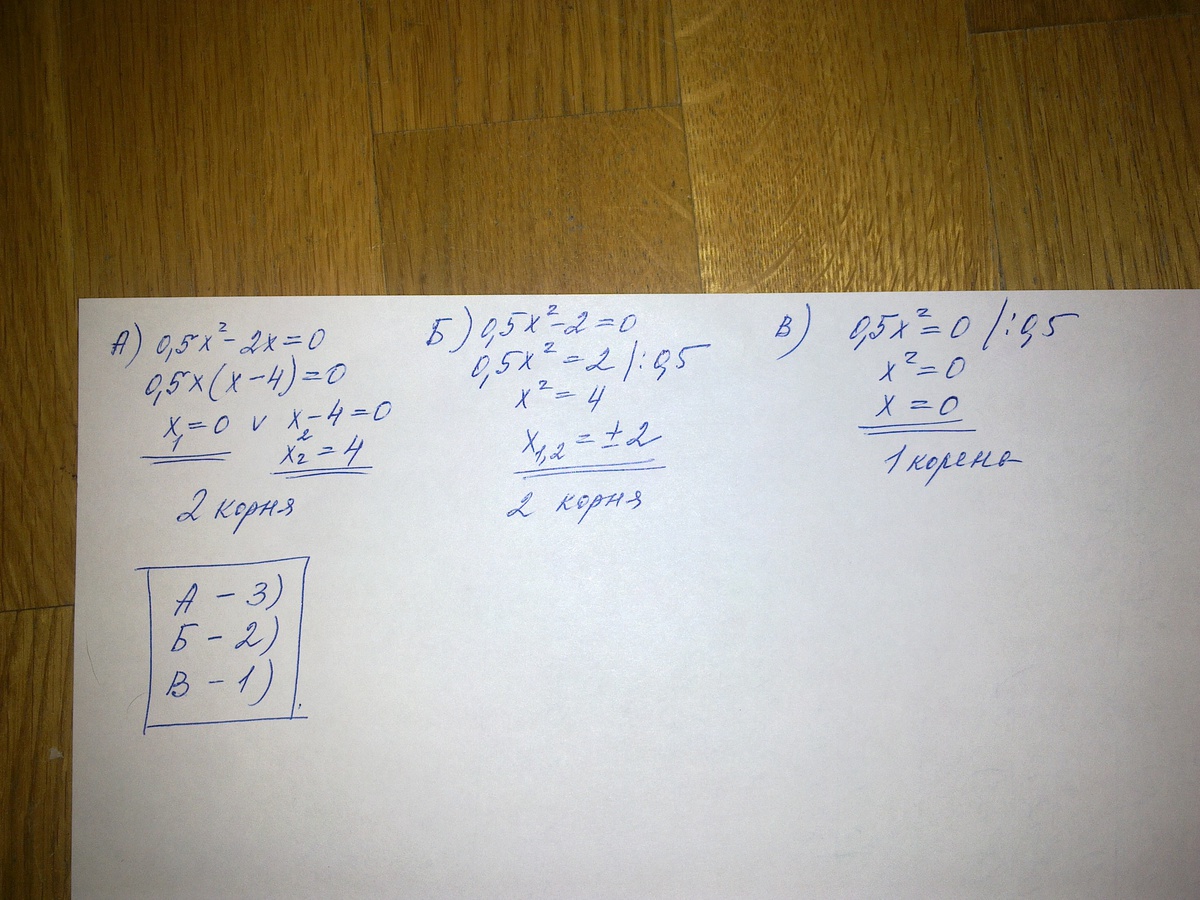 А) 0,5x² - 2x = 0
0,5x(x - 4) = 0
x₁ = 0 v x₂ - 4 = 0
x₂ = 4
2 корня
Б) 0,5x² - 2 = 0
0,5x² = 2 /: 0,5
x² = 4
x₁,₂ = ± 2
2 корня
В) 0,5x² = 0 /: 0,5
x² = 0
x = 0
1 корень
А - 3)
Б - 2)
В - 1)